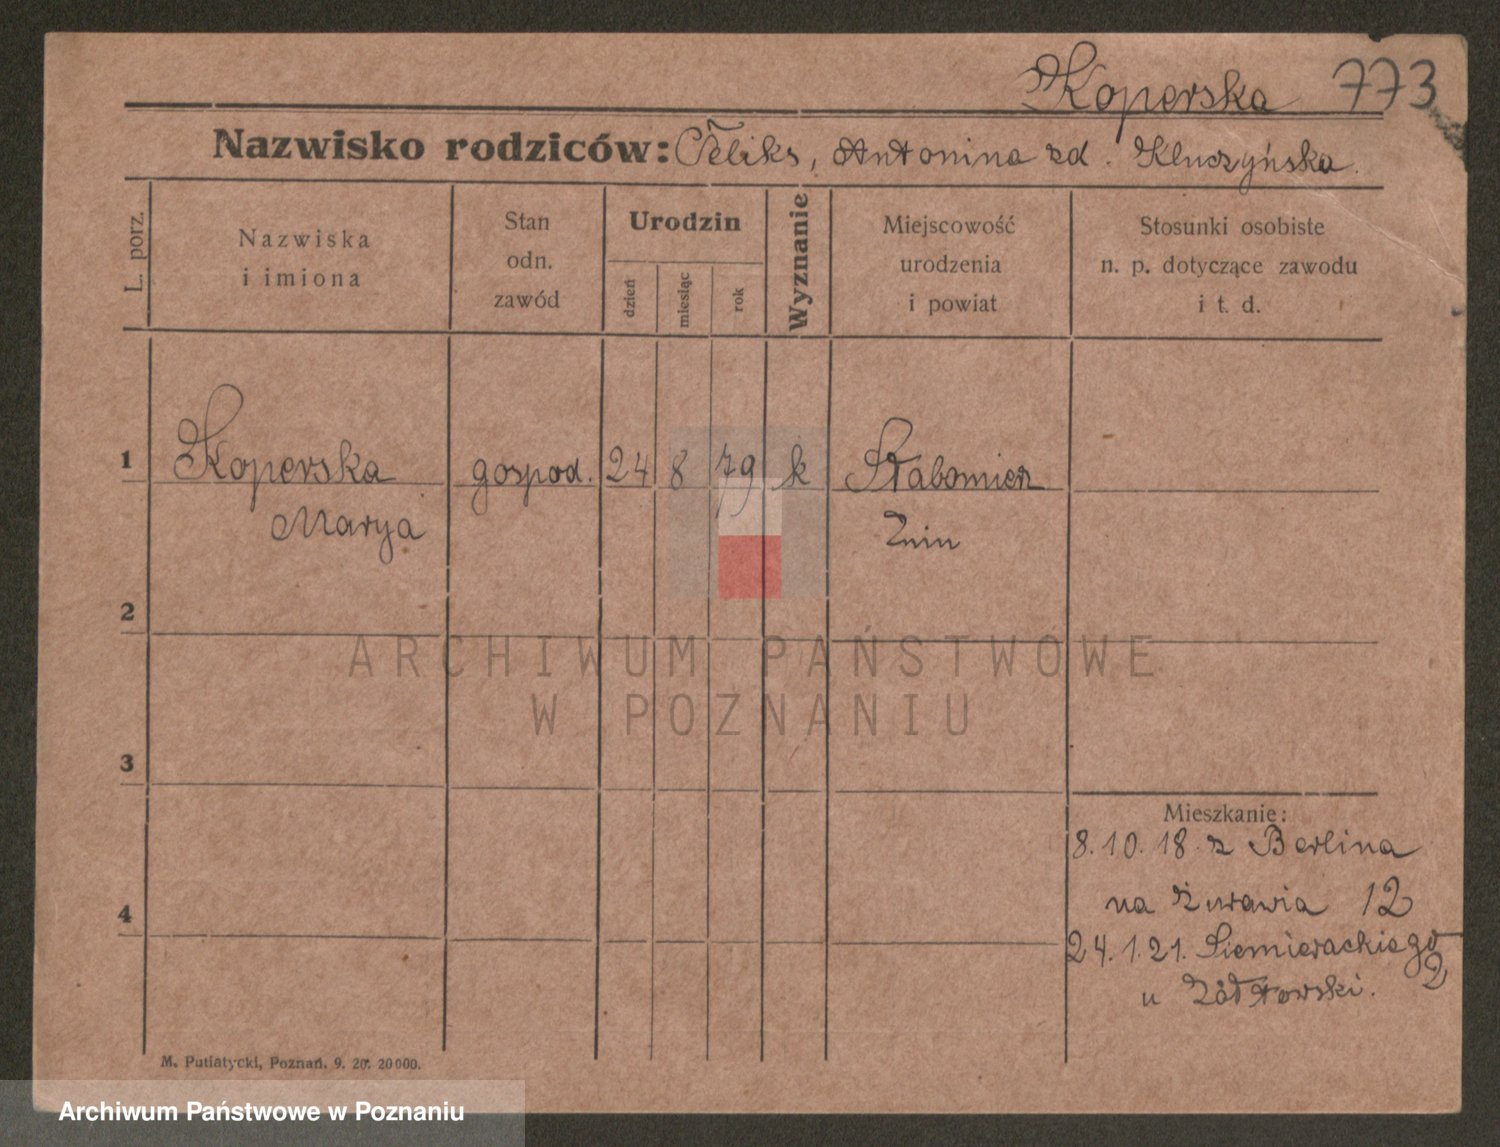 Koperska 773
Nazwisko rodziców: Feliks, Antonina zd. Kluczyńska.
L. porz.
Nazwiska
i imiona
Stan
odn.
zawód
Urodzin
dzień
miesiąc
rok
Wyznanie
Miejscowość
urodzenia
i powiat
Stosunki osobiste
n. p. dotyczące zawodu
i t. d.
1 Koperska gospod. 24 8 79 k Słabomierz
Marya Żnin
2
ARCHIWUM PAŃSTWOWE
W POZNANIU
3
Mieszkanie:
8.10.18 z Berlina
na Żurawia 12
4
24.1.21. Siemieradckiego 2
u Żółtowski.
M. Putiatycki, Poznań. 9. 20. 20000.
Archiwum Państwowe w Poznaniu